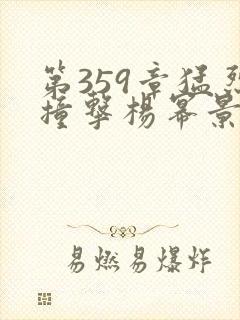 第359章猛烈
撞撃楊幂景
易燃易爆炸